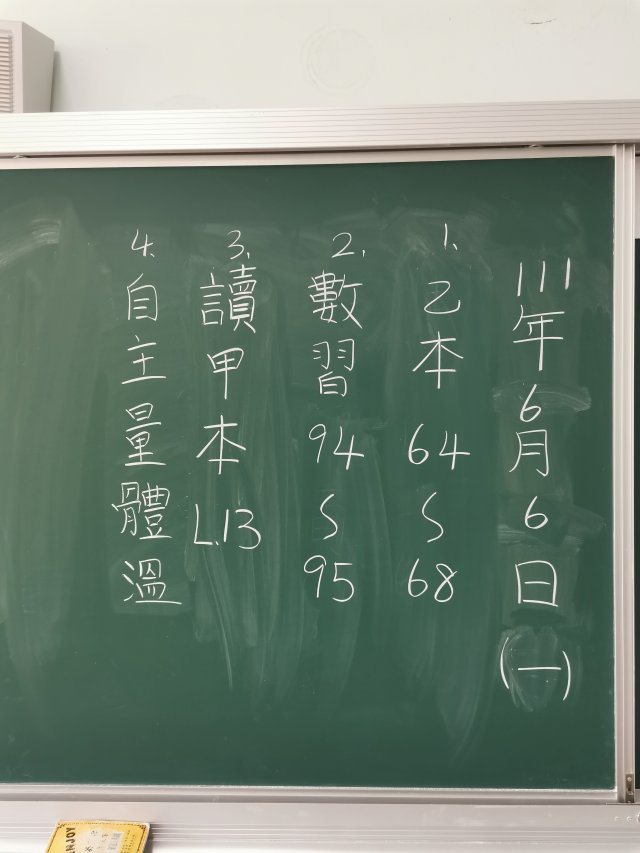 111年6月6日(一)
1.乙本64~68
2.數習94~95
3.讀甲本L.13
4.自主量體溫